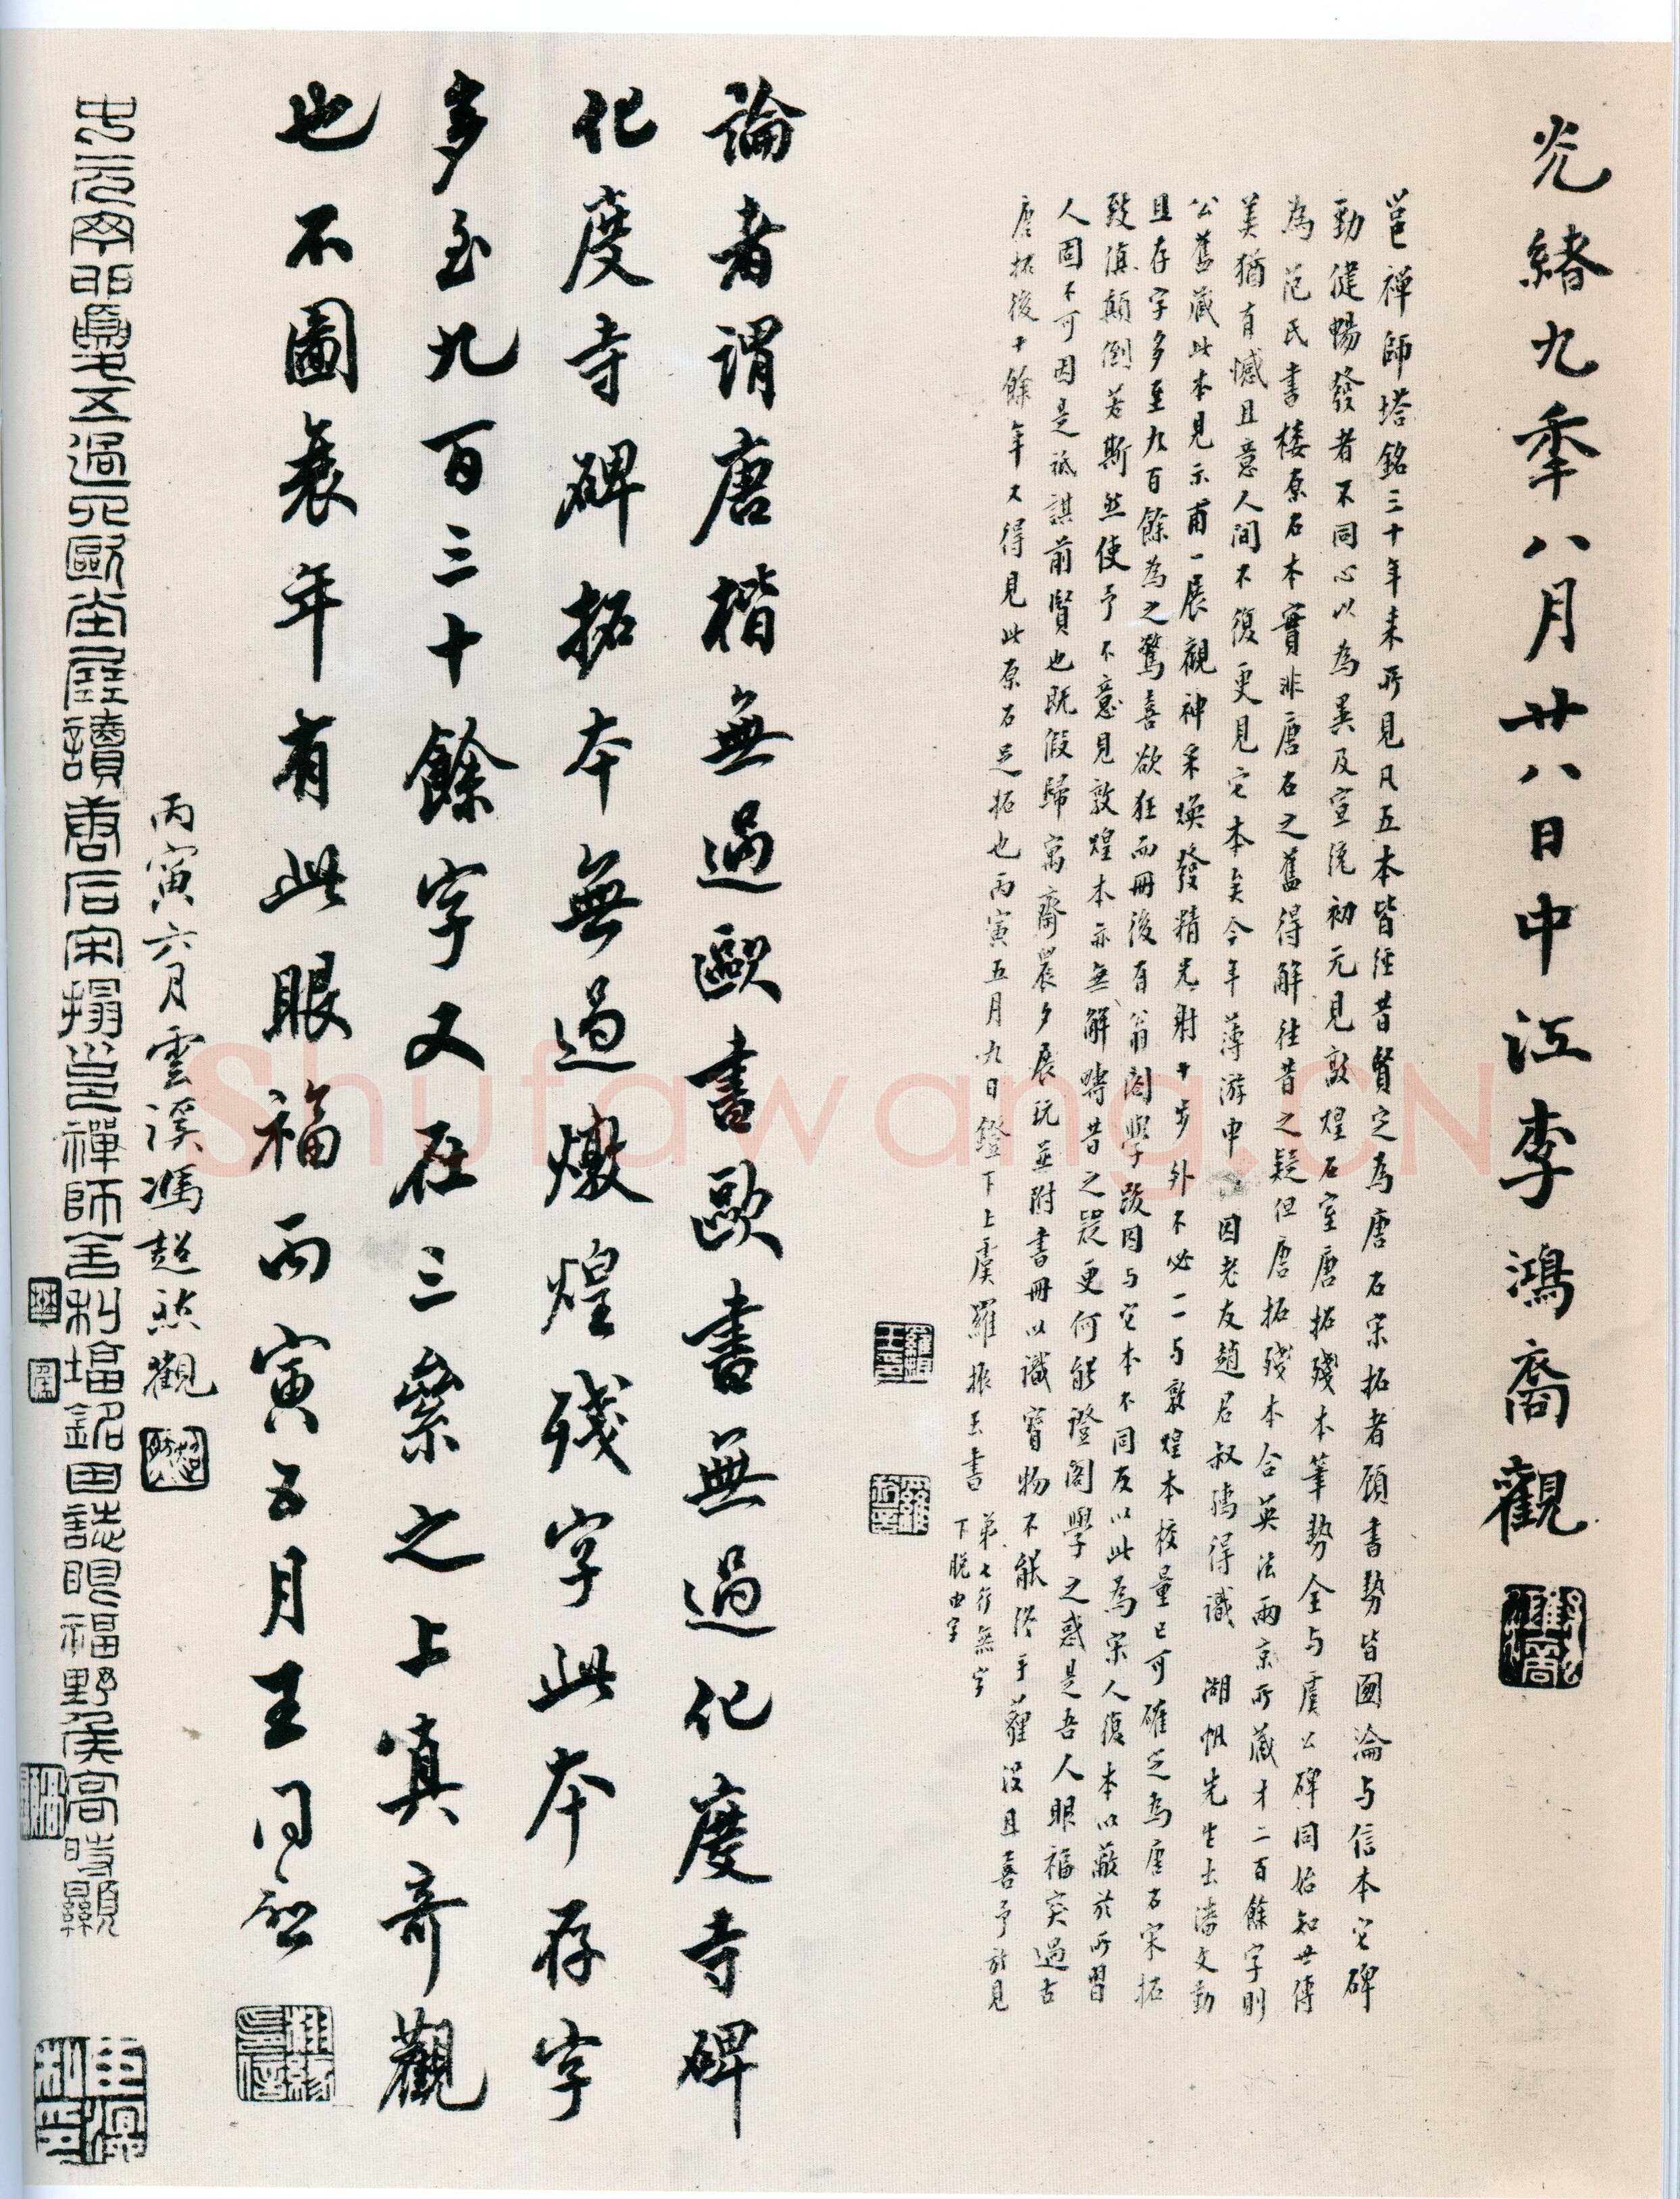 光緒九季八月廿八日中江李鴻裔觀
邕禪師塔銘三十年来所見凡五本皆經昔賢定為唐石宋拓者顧書勢皆圓淪与信本它碑
勁健暢發者不同心以為異及宣統初元見敦煌石室唐拓殘本筆勢全与虞公碑同始知世傳
為范氏書樓原石本實非唐石之舊得解往昔之疑但唐拓殘本合英法兩京所藏才二百餘字則
美猶有憾且意人間不復更見它本矣今年薄游申江因老友趙君叔孺得識湖帆先生出潘文勤
公舊藏此本見示甫一展觀神采煥發精光射十步外不必一一与敦煌本校量已可確定為唐石宋拓
且存字多至九百餘為之驚喜欲狂而冊後有翁閣學跋因与它本不同反以此為宋人復本以蔽於所習
致滇顛倒若斯然使予不意見敦煌本亦無解疇昔之疑更何能證閣學之惑是吾人眼福突過古
人固不可因是祗諆前賢也既假歸寓齋晨夕展玩並附書冊以識寶物不能終于薶沒且喜予於見
唐拓後十餘年又得見此原石足拓也丙寅五月九日鐙下上虞羅振玉書
弟七行無字
下脫由字
論者謂唐楷無過歐書歐書無過化度寺碑
化度寺碑拓本無過燉煌殘字此本存字
多至九百三十餘字又在三絫之上真奇觀
也不圖衰年有此眼福丙寅五月王同愈
丙寅六月雲溪馮超然觀
讀唐石宋搨邕禪師舍利塔銘田誌眼福野侯高時顯
Shufawang.CN